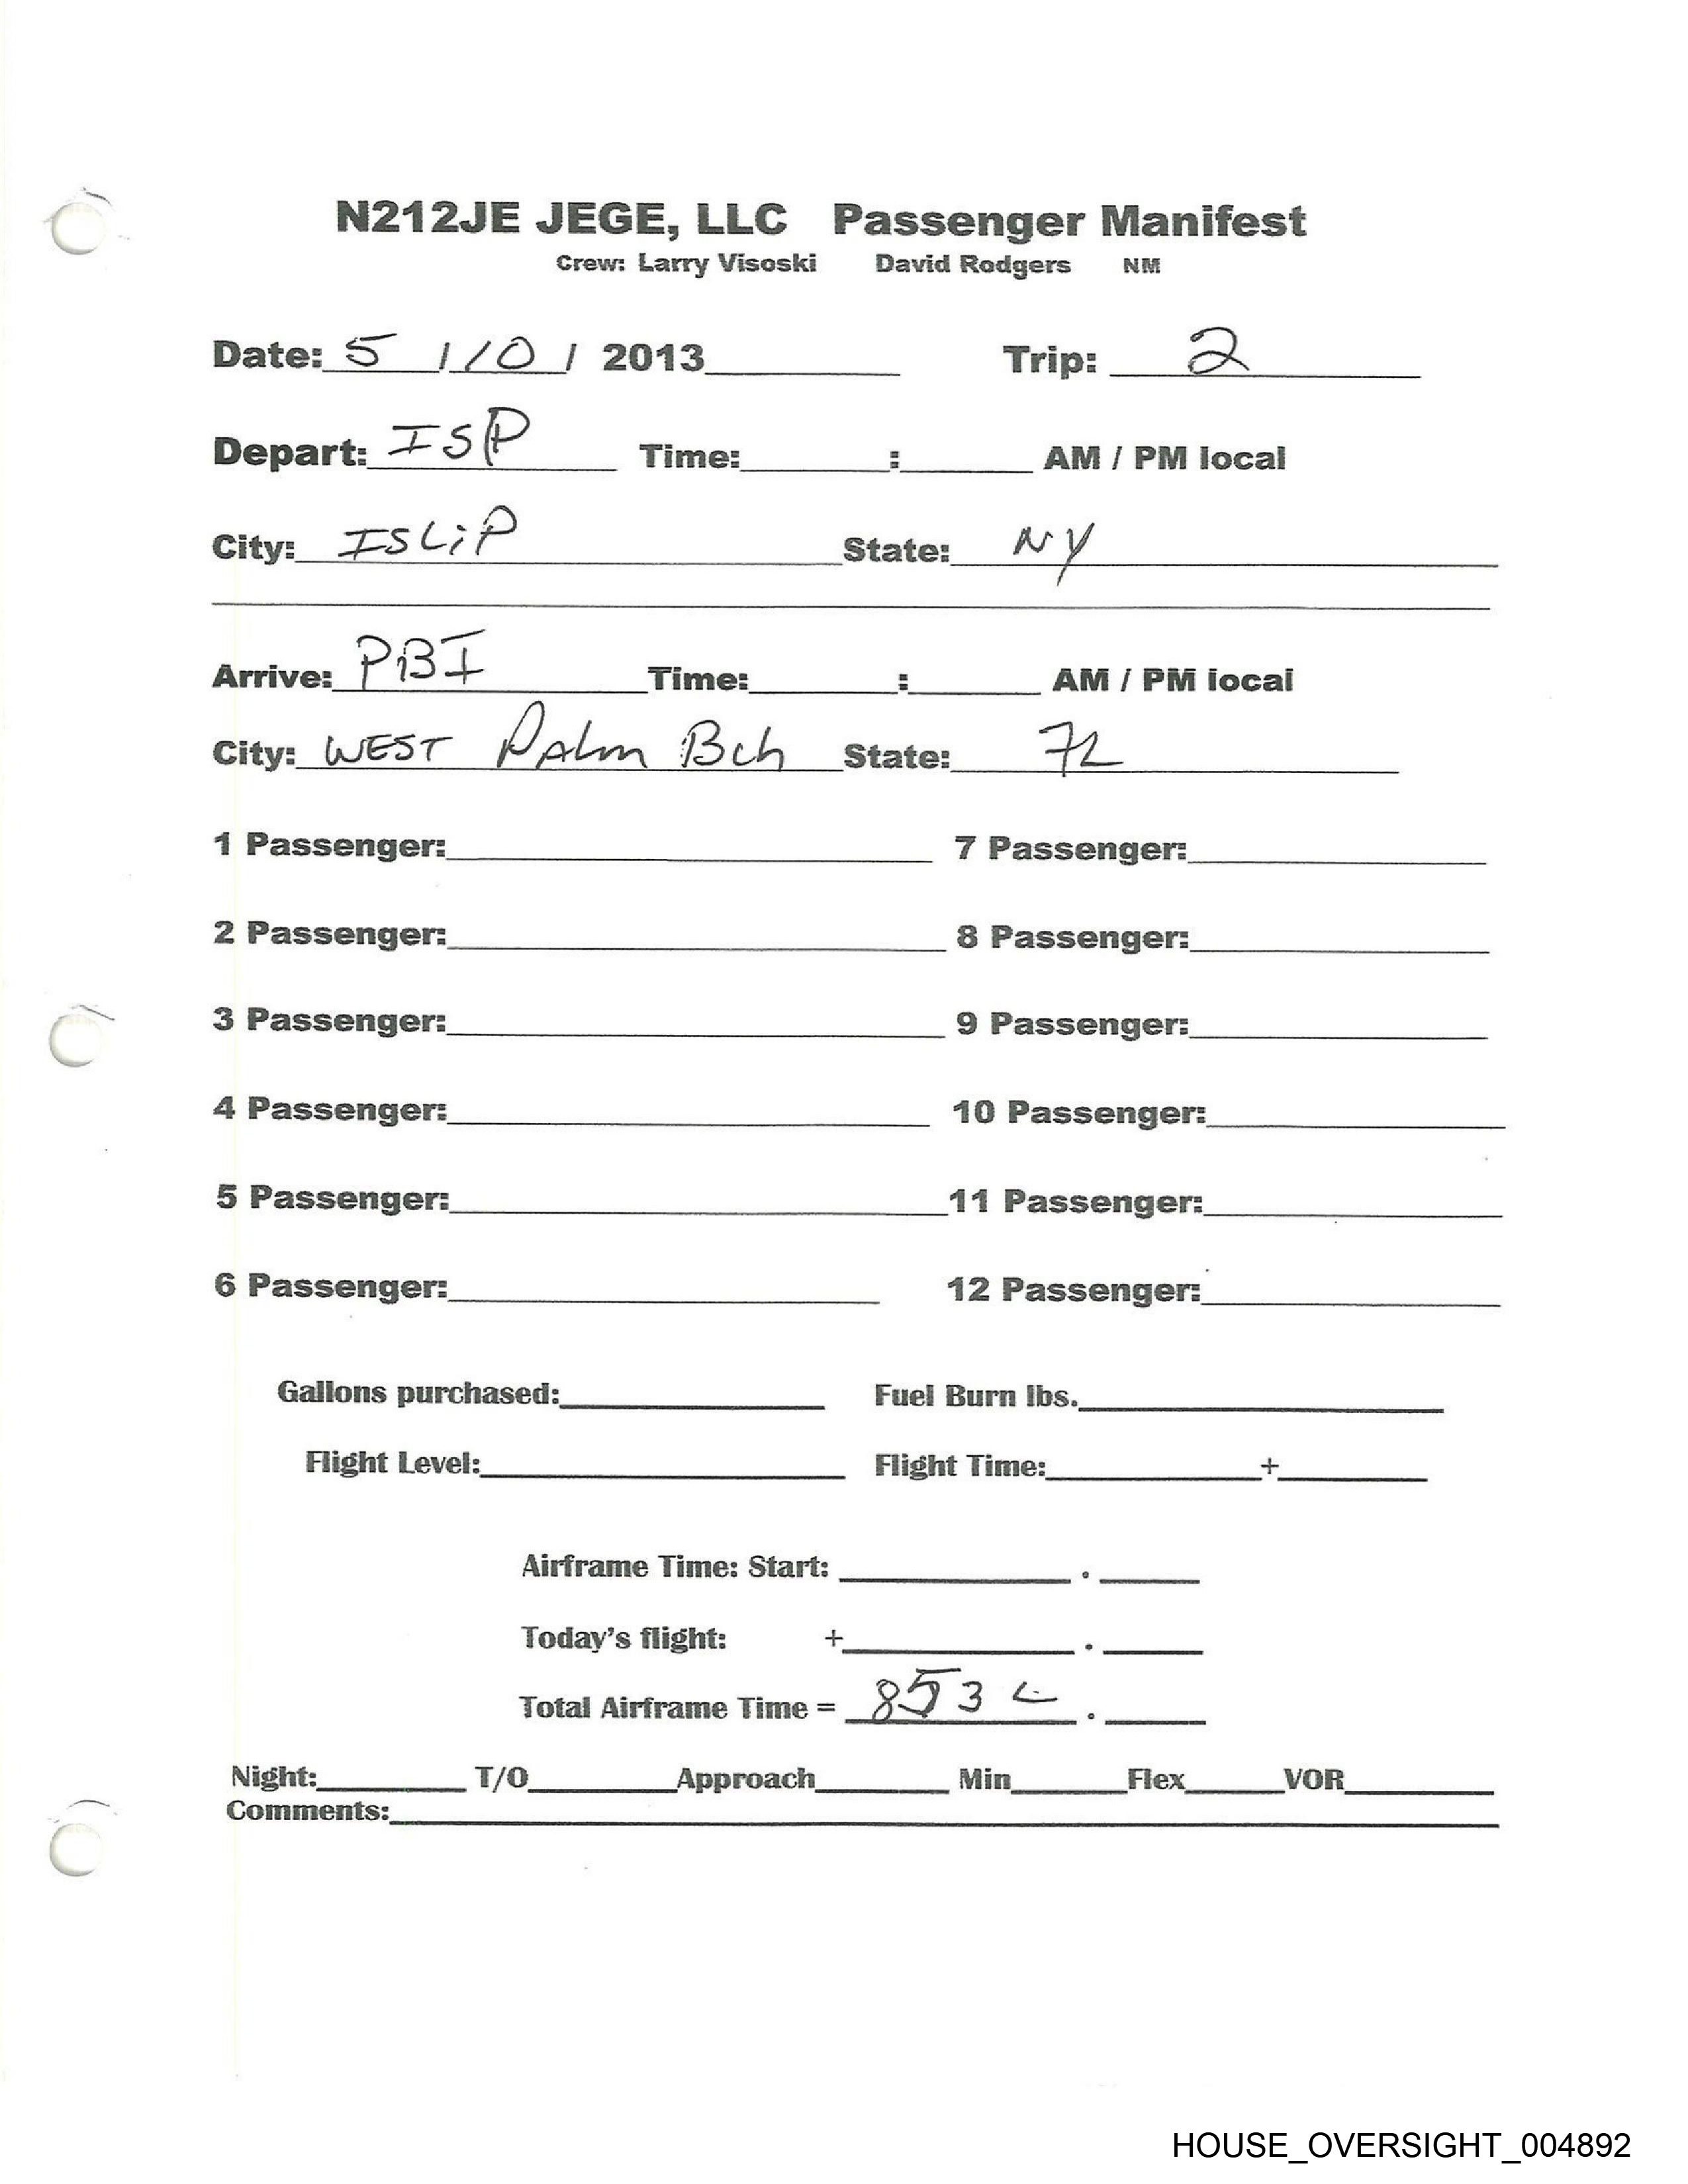 N212JE JEGE, LLC Passenger Manifest
Crew: Larry Visoski David Rodgers NM
Date: 5 / 10 / 2013 Trip: 2
Depart: ISP Time: : AM / PM local
City: ISLiP State: NY
Arrive: PBI Time: : AM / PM local
City: WEST PALm Bch State: FL
1 Passenger: 7 Passenger:
2 Passenger: 8 Passenger:
3 Passenger: 9 Passenger:
4 Passenger: 10 Passenger:
5 Passenger: 11 Passenger:
6 Passenger: 12 Passenger:
Gallons purchased: Fuel Burn lbs.
Flight Level: Flight Time: +
Airframe Time: Start: .
Today's flight: + .
Total Airframe Time = .
Night: T/O Approach Min Flex VOR
Comments:
HOUSE_OVERSIGHT_004892